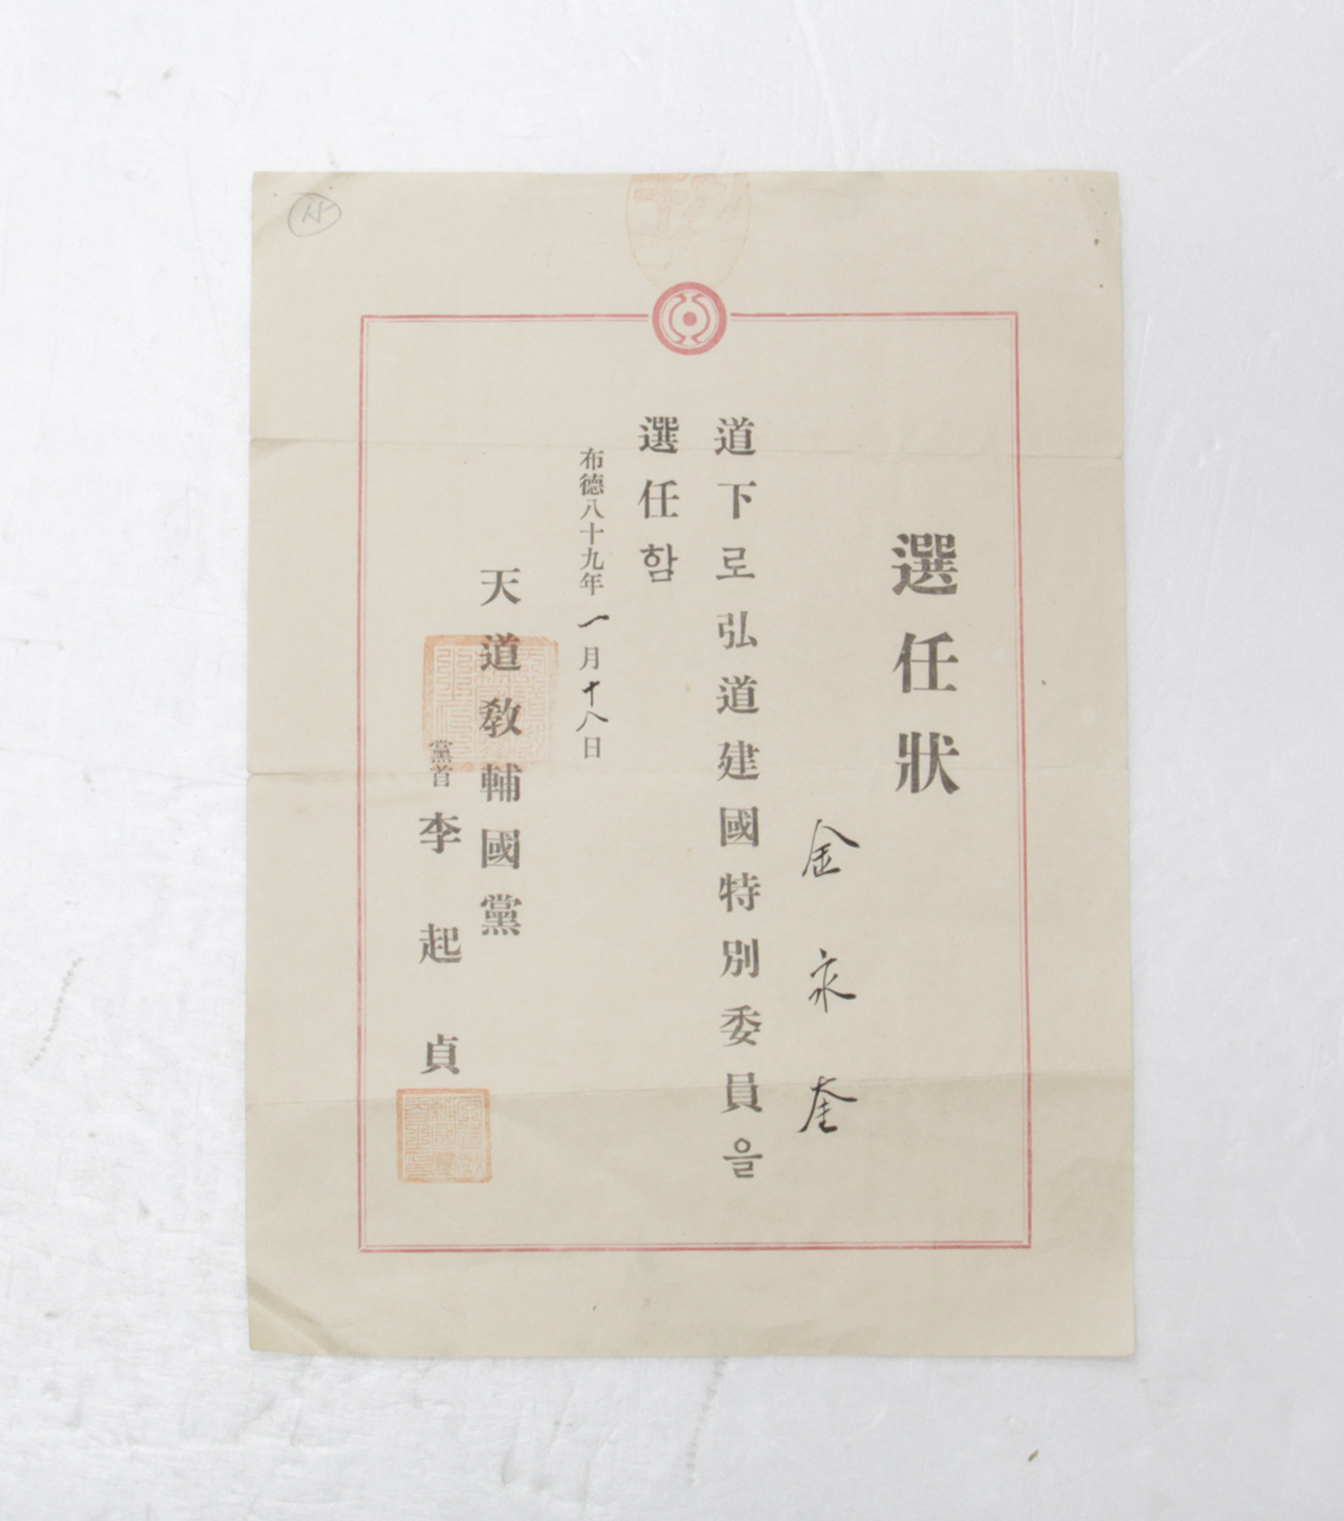 選任狀
金永奎
道下로弘道建國特別委員을
選任함
布德八十九年一月十八日
天道敎輔國黨
黨首 李起貞